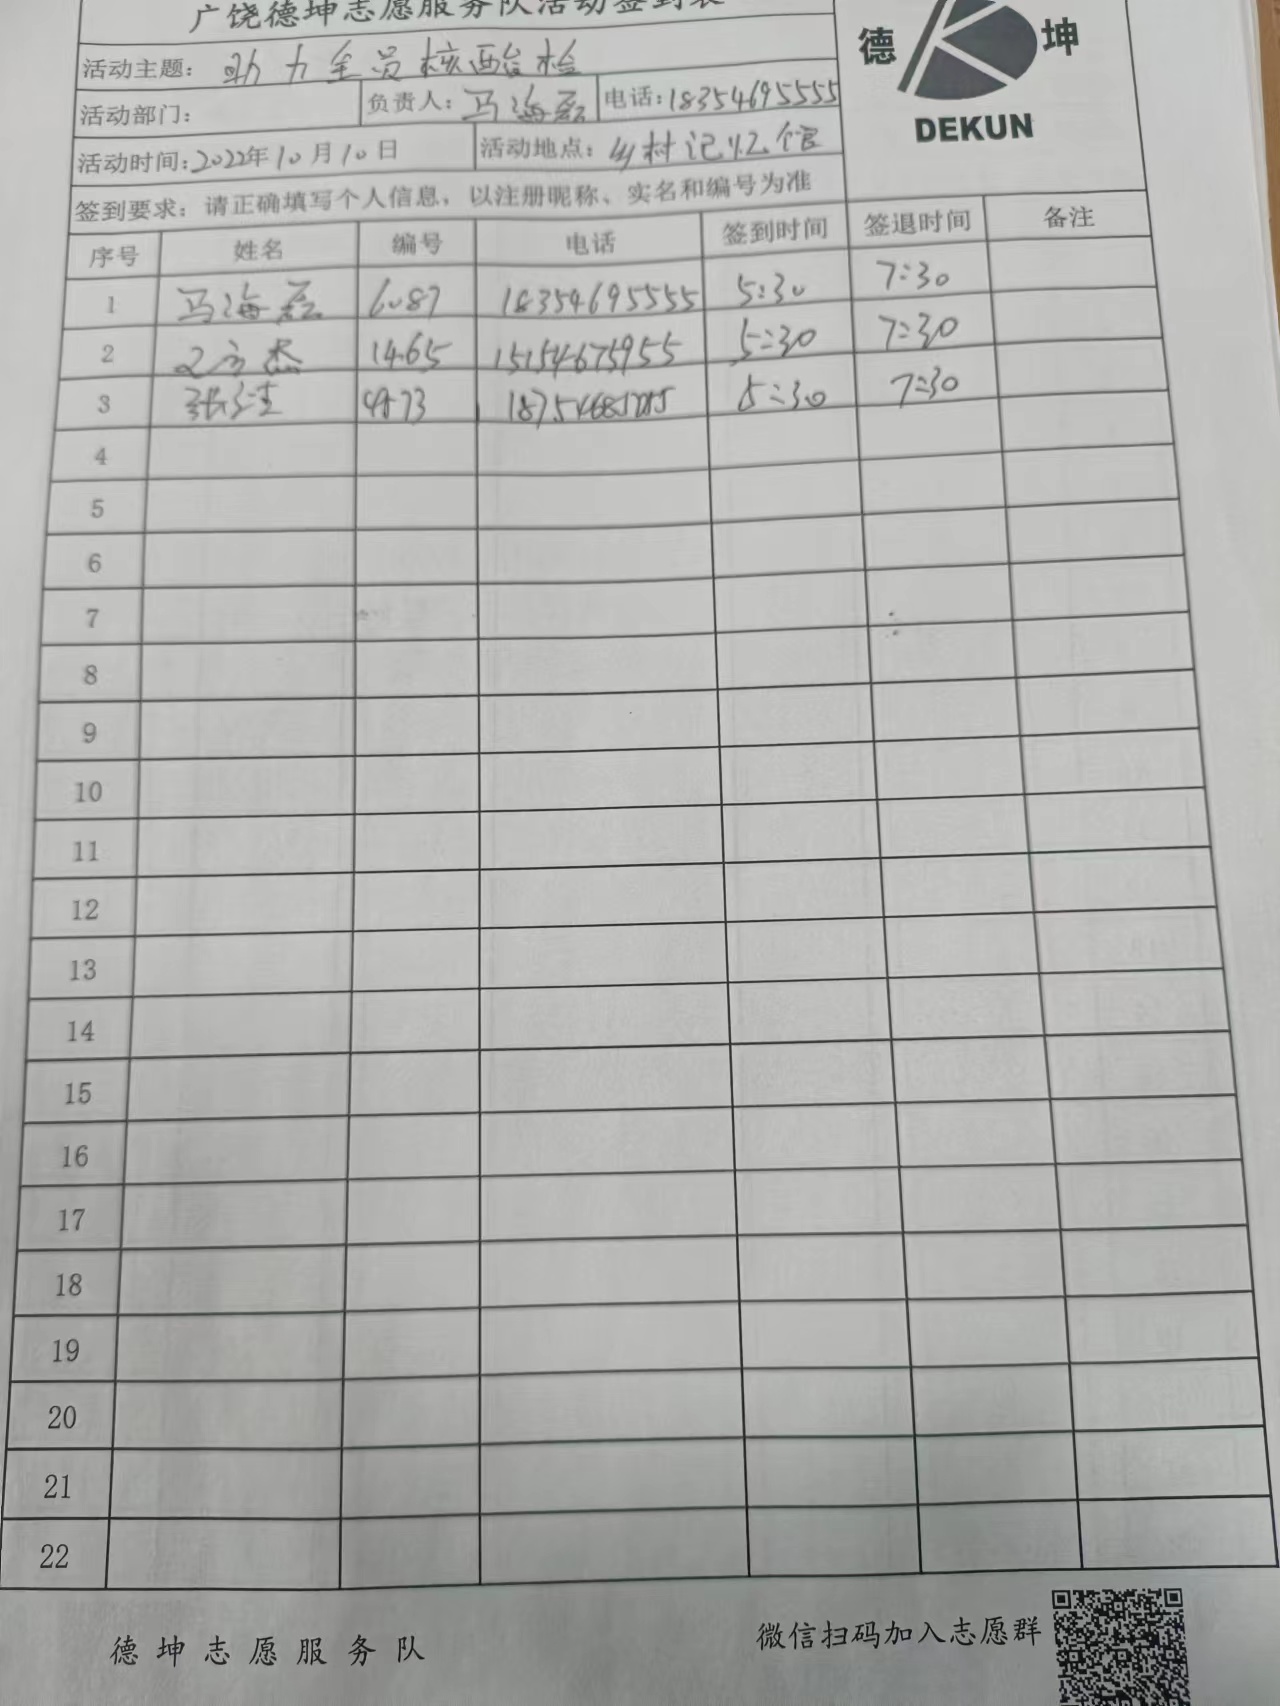 广饶德坤志愿服务队活动签到表
德 坤
DEKUN
活动主题：助力全员核酸检
活动部门： 负责人：马海磊 电话：18354695555
活动时间：2022年10月10日 活动地点：乡村记忆馆
签到要求：请正确填写个人信息，以注册昵称、实名和编号为准
序号 姓名 编号 电话 签到时间 签退时间 备注
1 马海磊 6087 18354695555 5:30 7:30
2 杰 1465 15154675955 5:30 7:30
3 张 4973 5:30 7:30
4
5
6
7
8
9
10
11
12
13
14
15
16
17
18
19
20
21
22
德坤志愿服务队 微信扫码加入志愿群